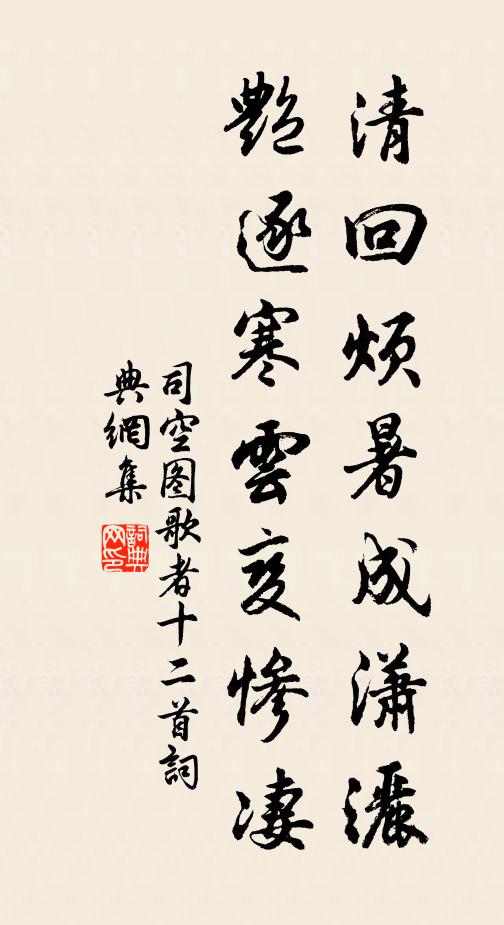 清回烦暑成潇灑
艷逐寒雲变惨凄
司空图歌者十二首詞
典網集
詞典
网印